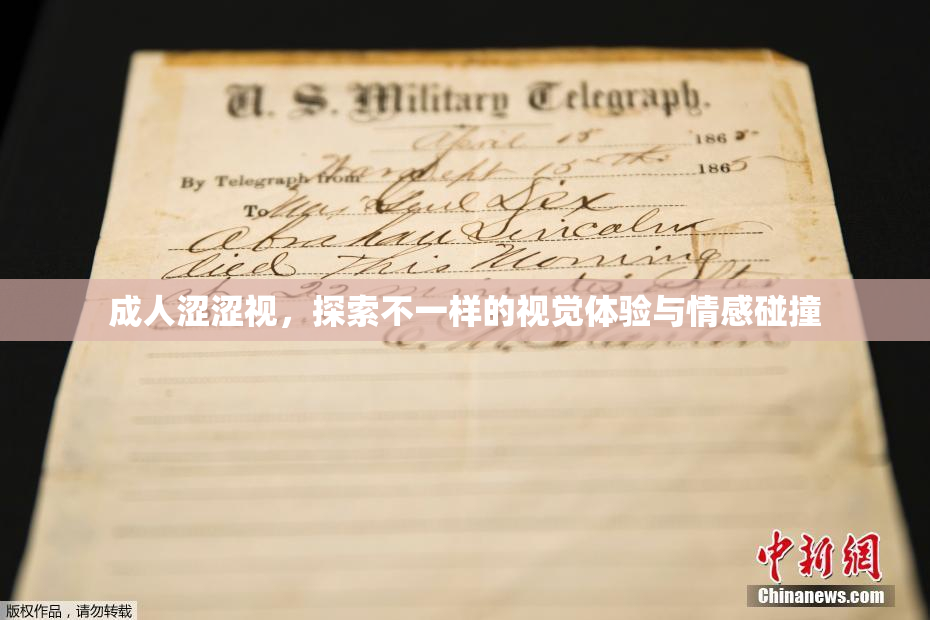 U. S. Military Telegraph.
April 15 1865
By Telegraph from War Dept 15th 1865
To Maj Genl Dix
Abraham Lincoln
died This Morning
at 22 minutes after
成人涩涩视，探索不一样的视觉体验与情感碰撞
中新网
Chinanews.com
版权作品，请勿转载